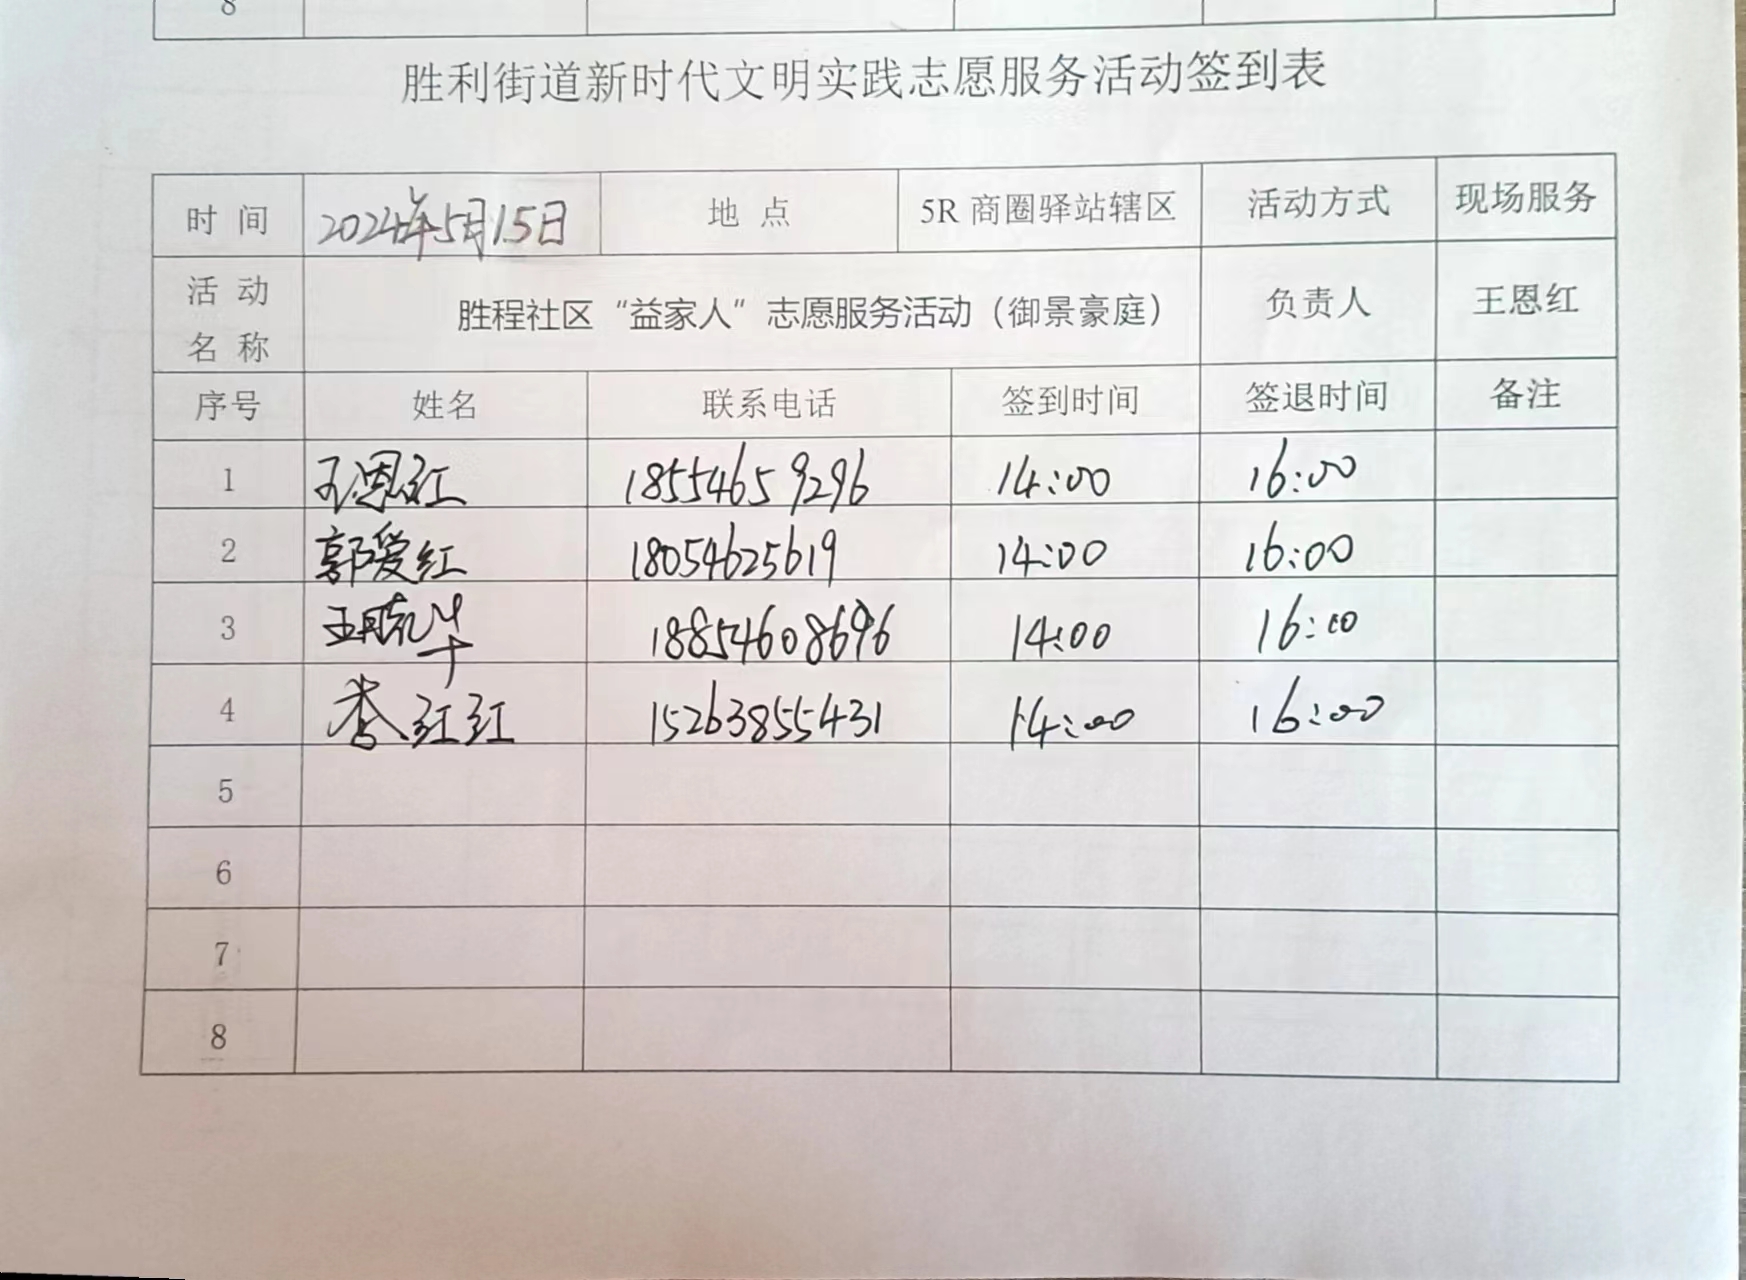 8
胜利街道新时代文明实践志愿服务活动签到表
时 间 2024年5月15日 地 点 5R 商圈驿站辖区 活动方式 现场服务
活 动
名 称 胜程社区“益家人”志愿服务活动（御景豪庭） 负责人 王恩红
序号 姓名 联系电话 签到时间 签退时间 备注
1 王恩红 18554659296 14:00 16:00
2 郭爱红 18054625619 14:00 16:00
3 18854608696 14:00 16:00
4 李红红 15263855431 14:00 16:00
5
6
7
8